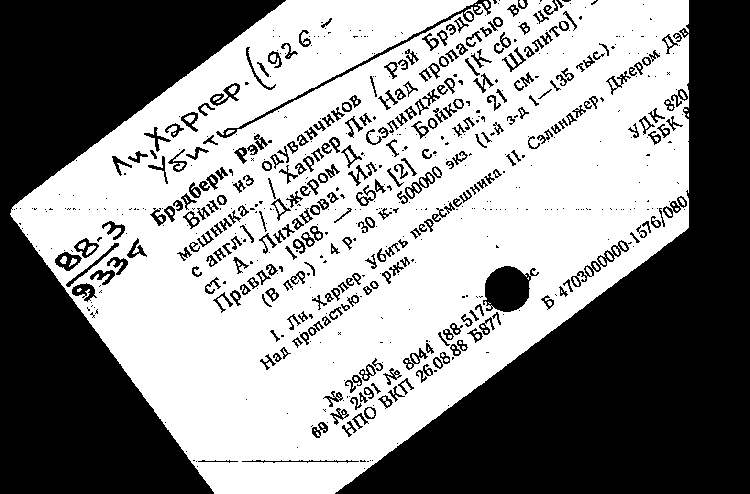 Ли, Харпер. (1926 -
Убить
88-3
9334
Брэдбери, Рэй.
Вино из одуванчиков / Рэй Брэдбери
мешника... / Харпер Ли. Над пропастью во
с англ.] / Джером Д. Сэлинджер; [К сб. в цело
ст. А. Лиханова; Ил. Г. Бойко, И. Шалито]. —
Правда, 1988. — 654,[2] с. : ил.; 21 см.
(В пер.) : 4 р. 30 к., 500000 экз. (1-й з-д 1—135 тыс.).
I. Ли, Харпер. Убить пересмешника. II. Сэлинджер, Джером Дэв
Над пропастью во ржи.
УДК 820
ББК 8
№ 29805
69 № 2491 № 8044 [88-5173
НПО ВКП 26.08.88 Б877
Б 4703000000-1576/080